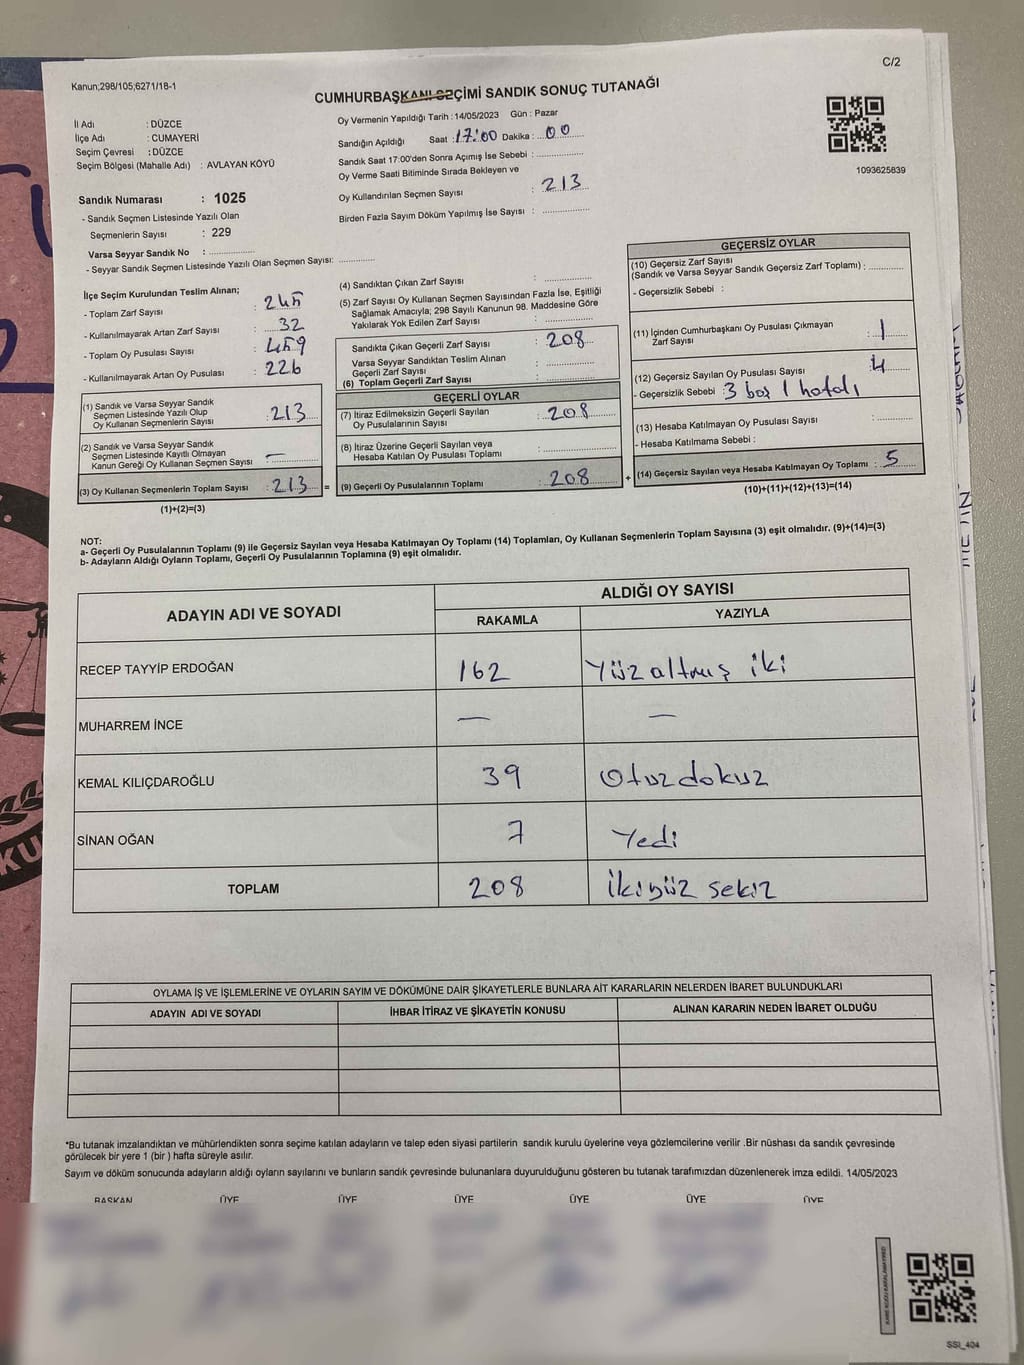 C/2
Kanun;298/105;6271/18-1
CUMHURBAŞKANI SEÇİMİ SANDIK SONUÇ TUTANAĞI
İl Adı : DÜZCE
İlçe Adı : CUMAYERİ
Seçim Çevresi : DÜZCE
Seçim Bölgesi (Mahalle Adı) : AVLAYAN KÖYÜ
Oy Vermenin Yapıldığı Tarih : 14/05/2023 Gün : Pazar
Sandığın Açıldığı Saat : 17:00 Dakika : 00
Sandık Saat 17:00'den Sonra Açımış İse Sebebi :
Oy Verme Saati Bitiminde Sırada Bekleyen ve
Oy Kullandırılan Seçmen Sayısı : 213
Birden Fazla Sayım Döküm Yapılmış İse Sayısı :
1093625839
Sandık Numarası : 1025
- Sandık Seçmen Listesinde Yazılı Olan
Seçmenlerin Sayısı : 229
Varsa Seyyar Sandık No :
- Seyyar Sandık Seçmen Listesinde Yazılı Olan Seçmen Sayısı:
İlçe Seçim Kurulundan Teslim Alınan;
- Toplam Zarf Sayısı : 245
- Kullanılmayarak Artan Zarf Sayısı : 32
- Toplam Oy Pusulası Sayısı : 459
- Kullanılmayarak Artan Oy Pusulası : 226
(1) Sandık ve Varsa Seyyar Sandık
Seçmen Listesinde Yazılı Olup
Oy Kullanan Seçmenlerin Sayısı : 213
(2) Sandık ve Varsa Seyyar Sandık
Seçmen Listesinde Kayıtlı Olmayan
Kanun Gereği Oy Kullanan Seçmen Sayısı : —
(3) Oy Kullanan Seçmenlerin Toplam Sayısı : 213 =
(1)+(2)=(3)
(4) Sandıktan Çıkan Zarf Sayısı :
(5) Zarf Sayısı Oy Kullanan Seçmen Sayısından Fazla İse, Eşitliği
Sağlamak Amacıyla; 298 Sayılı Kanunun 98. Maddesine Göre
Yakılarak Yok Edilen Zarf Sayısı :
Sandıkta Çıkan Geçerli Zarf Sayısı : 208
Varsa Seyyar Sandıktan Teslim Alınan
Geçerli Zarf Sayısı :
(6) Toplam Geçerli Zarf Sayısı :
GEÇERLİ OYLAR
(7) İtiraz Edilmeksizin Geçerli Sayılan
Oy Pusulalarının Sayısı : 208
(8) İtiraz Üzerine Geçerli Sayılan veya
Hesaba Katılan Oy Pusulası Toplamı :
(9) Geçerli Oy Pusulalarının Toplamı : 208 +
GEÇERSİZ OYLAR
(10) Geçersiz Zarf Sayısı
(Sandık ve Varsa Seyyar Sandık Geçersiz Zarf Toplamı) :
- Geçersizlik Sebebi :
(11) İçinden Cumhurbaşkanı Oy Pusulası Çıkmayan
Zarf Sayısı : 1
(12) Geçersiz Sayılan Oy Pusulası Sayısı : 4
- Geçersizlik Sebebi : 3 boş 1 hatalı
(13) Hesaba Katılmayan Oy Pusulası Sayısı :
- Hesaba Katılmama Sebebi :
(14) Geçersiz Sayılan veya Hesaba Katılmayan Oy Toplamı : 5
(10)+(11)+(12)+(13)=(14)
NOT:
a- Geçerli Oy Pusulalarının Toplamı (9) ile Geçersiz Sayılan veya Hesaba Katılmayan Oy Toplamı (14) Toplamları, Oy Kullanan Seçmenlerin Toplam Sayısına (3) eşit olmalıdır. (9)+(14)=(3)
b- Adayların Aldığı Oyların Toplamı, Geçerli Oy Pusulalarının Toplamına (9) eşit olmalıdır.
ADAYIN ADI VE SOYADI
ALDIĞI OY SAYISI
RAKAMLA YAZIYLA
RECEP TAYYİP ERDOĞAN 162 Yüz altmış iki
MUHARREM İNCE — —
KEMAL KILIÇDAROĞLU 39 Otuz dokuz
SİNAN OĞAN 7 Yedi
TOPLAM 208 İkiyüz sekiz
OYLAMA İŞ VE İŞLEMLERİNE VE OYLARIN SAYIM VE DÖKÜMÜNE DAİR ŞİKAYETLERLE BUNLARA AİT KARARLARIN NELERDEN İBARET BULUNDUKLARI
ADAYIN ADI VE SOYADI İHBAR İTİRAZ VE ŞİKAYETİN KONUSU ALINAN KARARIN NEDEN İBARET OLDUĞU
*Bu tutanak imzalandıktan ve mühürlendikten sonra seçime katılan adayların ve talep eden siyasi partilerin sandık kurulu üyelerine veya gözlemcilerine verilir .Bir nüshası da sandık çevresinde
görülecek bir yere 1 (bir ) hafta süreyle asılır.
Sayım ve döküm sonucunda adayların aldığı oyların sayılarını ve bunların sandık çevresinde bulunanlara duyurulduğunu gösteren bu tutanak tarafımızdan düzenlenerek imza edildi. 14/05/2023
BAŞKAN ÜYE ÜYE ÜYE ÜYE ÜYE ÜYE
SSI_404